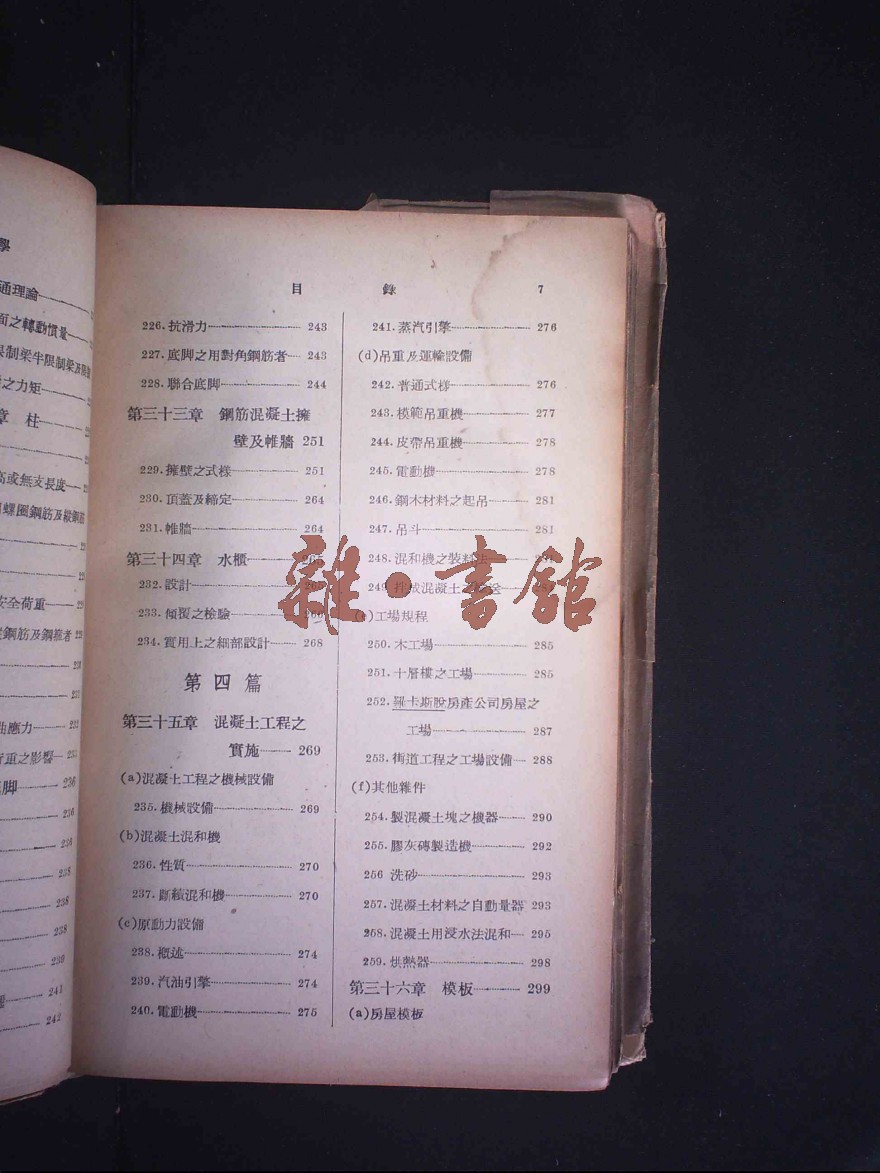 學
通理論
面之轉動慣量
限制梁半限制梁及
之力矩
章 柱
高或無支長度
螺圈鋼筋及縱鋼筋
安全荷重
鋼筋及鋼
曲應力 232
行重之影響
脚 236
236
236
238
238
238
239
241
242
目 錄 7
226.抗滑力 243
227.底脚之用對角鋼筋者 243
228.聯合底脚 244
第三十三章 鋼筋混凝土擁
壁及帷牆 251
229.擁壁之式樣 251
230.頂蓋及締定 264
231.帷牆 264
第三十四章 水櫃 265
232.設計
233.傾覆之檢驗 266
234.實用上之細部設計 268
第四篇
第三十五章 混凝土工程之
實施 269
(a)混凝土工程之機械設備
235.機械設備 269
(b)混凝土混和機
236.性質 270
237.斷續混和機 270
(c)原動力設備
238.概述 274
239.汽油引擎 274
240.電動機 275
241.蒸汽引擎 276
(d)吊重及運輸設備
242.普通式樣 276
243.模範吊重機 277
244.皮帶吊重機 278
245.電動機 278
246.鋼木材料之起吊 281
247.吊斗 281
248.混和機之裝料法
249.拌成混凝土之
(e)工場規程
250.木工場 285
251.十層樓之工場 285
252.羅卡斯股房產公司房屋之
工場 287
253.街道工程之工場設備 288
(f)其他雜件
254.製混凝土塊之機器 290
255.膠灰磚製造機 292
256 洗砂 293
257.混凝土材料之自動量器 293
258.混凝土用浸水法混和 295
259.烘熱器 298
第三十六章 模板 299
(a)房屋模板
雜·書館